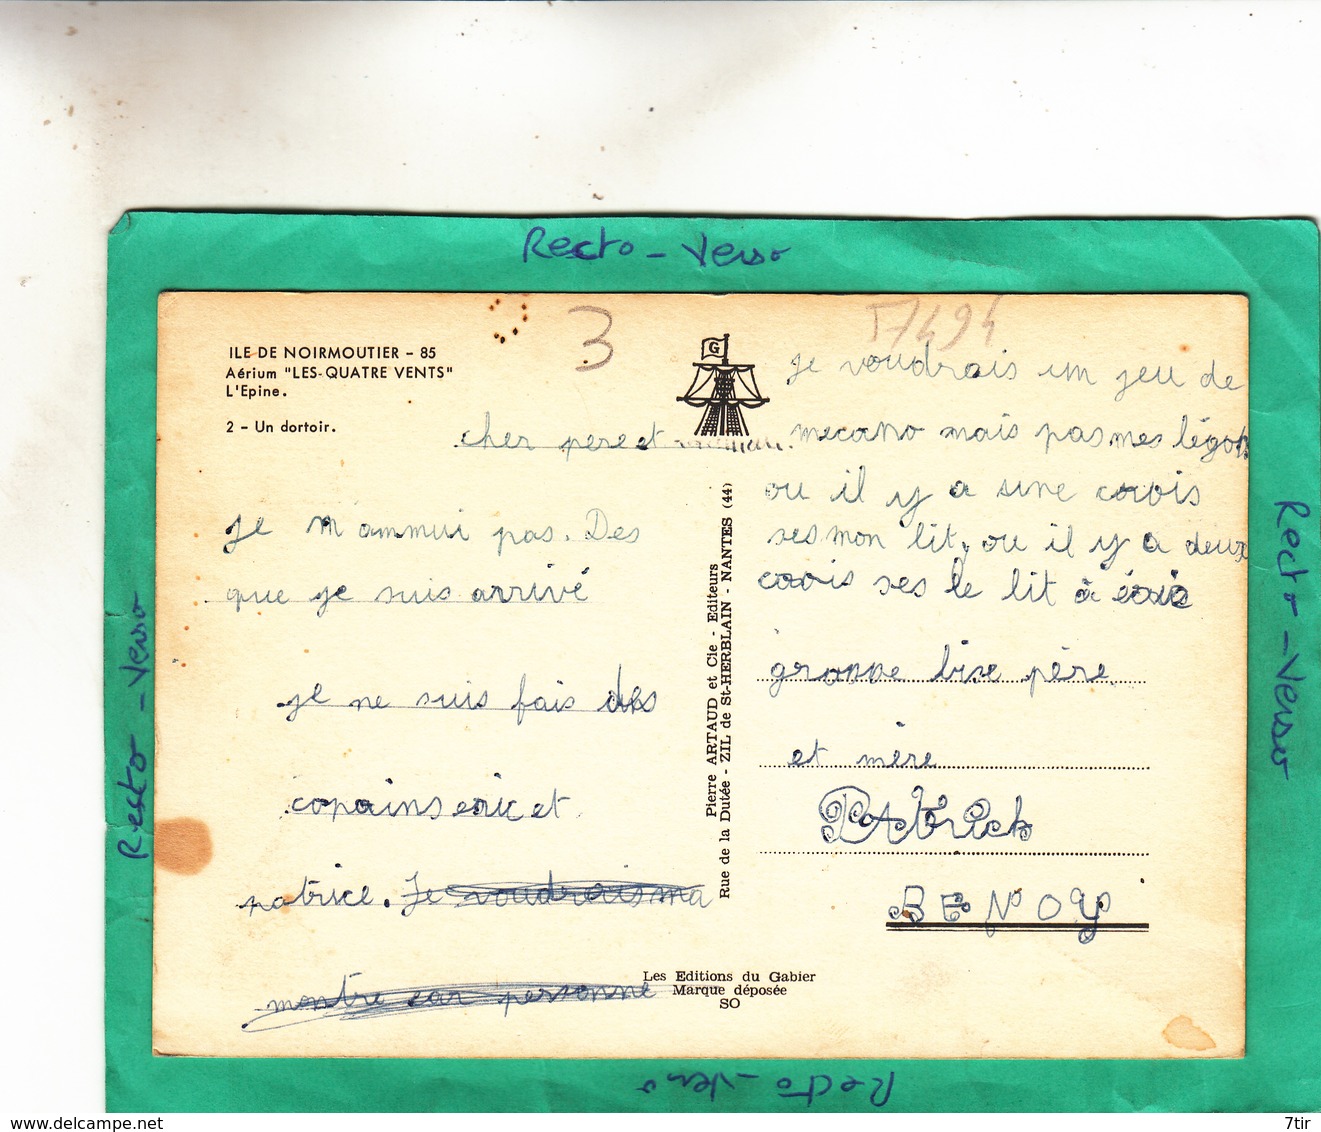 Recto - Verso
3
17494
ILE DE NOIRMOUTIER - 85
Aérium "LES-QUATRE VENTS"
L'Epine.
2 - Un dortoir.
G
cher pere et maman.
je m'ammui pas. Des
que je suis arrivé
je ne suis fais des
copains eric et
patrice. Je voudrais ma
montre car personne
Pierre ARTAUD et Cie - Editeurs
Rue de la Dutée - ZIL de St-HERBLAIN - NANTES (44)
je voudrais un jeu de
mecano mais pas mes légos
ou il y a une crois
ses mon lit, ou il y a deux
crois ses le lit à éric
grosse bise père
et mère
PAtrick
BENOY
Les Editions du Gabier
Marque déposée
SO
Recto - Verso
Recto - Verso
Recto - Verso
www.delcampe.net
7tir